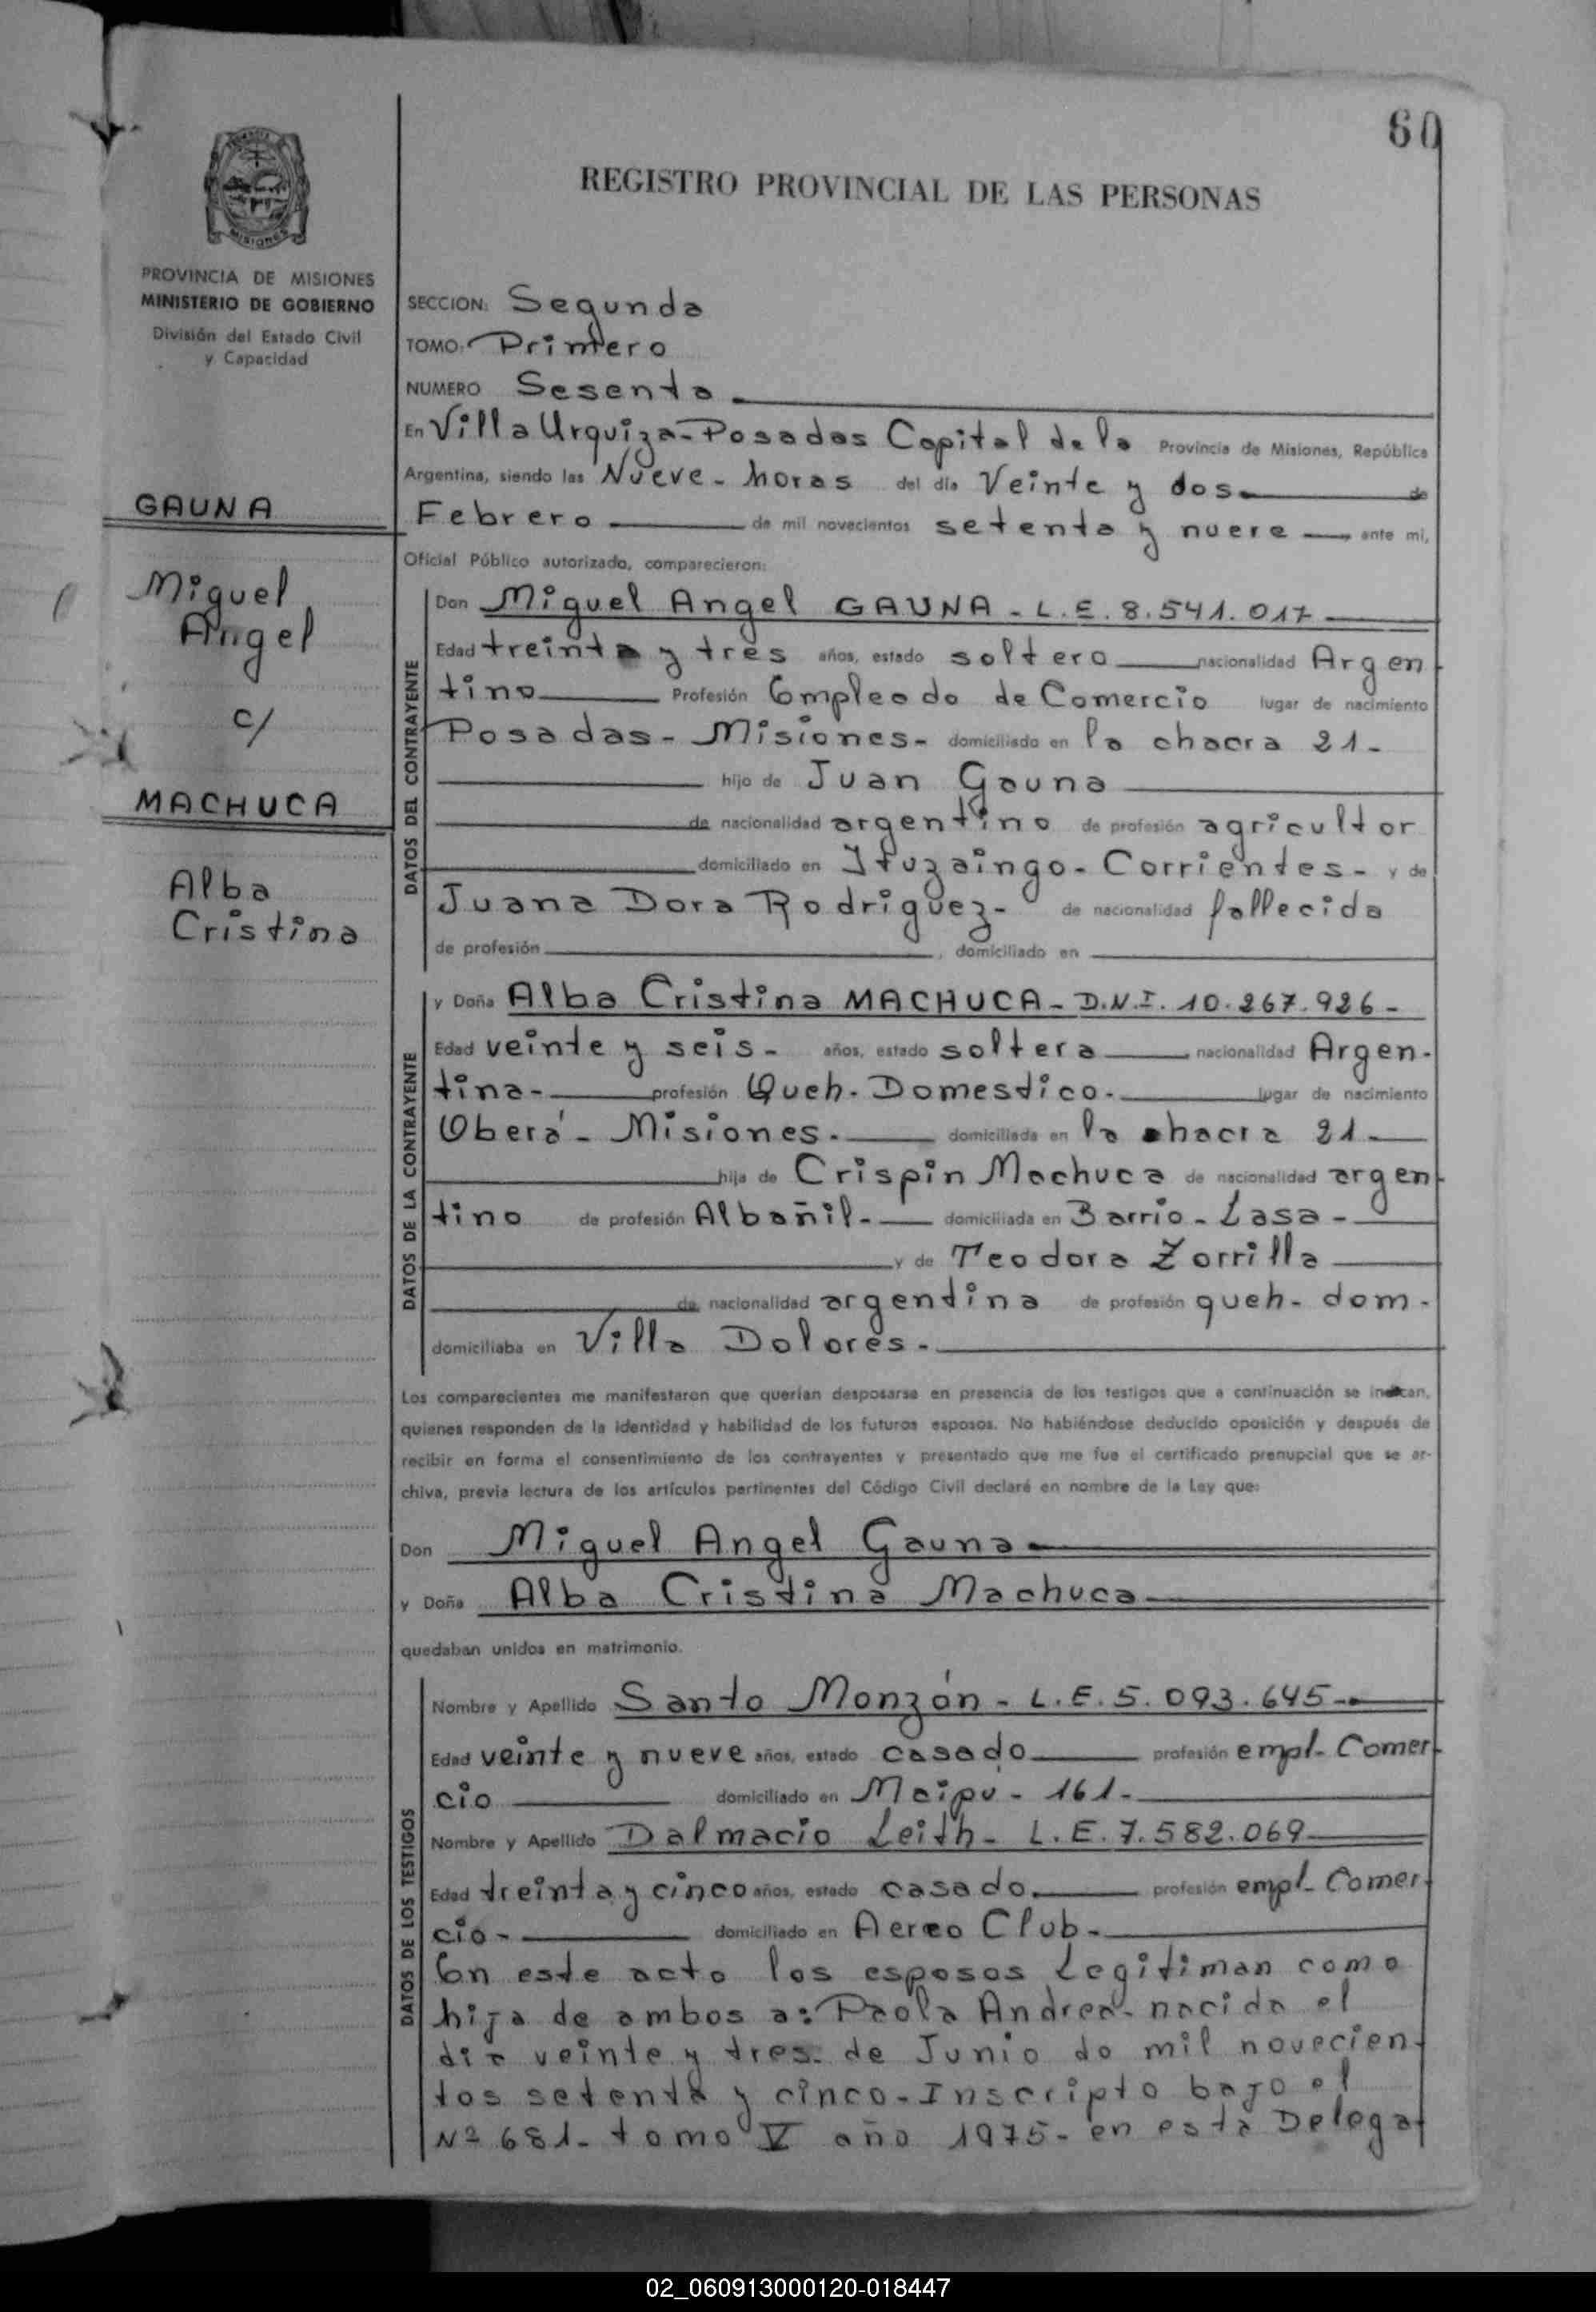 60
REGISTRO PROVINCIAL DE LAS PERSONAS
MISIONES
PROVINCIA DE MISIONES
MINISTERIO DE GOBIERNO
División del Estado Civil
y Capacidad
GAUNA
Miguel
Angel
c/
MACHUCA
Alba
Cristina
SECCION: Segunda
TOMO: Primero
NUMERO Sesenta
En Villa Urquiza-Posadas Capital de la Provincia de Misiones, República
Argentina, siendo las Nueve- horas del día Veinte y dos de
Febrero de mil novecientos setenta y nueve ante mi,
Oficial Público autorizado, comparecieron:
DATOS DEL CONTRAYENTE
Don Miguel Angel GAUNA - L.E. 8.541.017
Edad treinta y tres años, estado soltero nacionalidad Argen
tino Profesión Empleado de Comercio lugar de nacimiento
Posadas - Misiones- domiciliado en la chacra 21-
hijo de Juan Gauna
de nacionalidad argentino de profesión agricultor
domiciliado en Ituzaingo- Corrientes- y de
Juana Dora Rodriguez- de nacionalidad fallecida
de profesión , domiciliado en
DATOS DE LA CONTRAYENTE
y Doña Alba Cristina MACHUCA- D.N.I. 10.267.926-
Edad veinte y seis- años, estado soltera nacionalidad Argen-
tina- profesión Queh. Domestico. lugar de nacimiento
Oberá- Misiones. domiciliada en la chacra 21-
hija de Crispin Machuca de nacionalidad argen
tino de profesión Albañil- domiciliada en Barrio- Lasa-
y de Teodora Zorrilla
de nacionalidad argentina de profesión queh- dom-
domiciliaba en Villa Dolores-
Los comparecientes me manifestaron que querían desposarse en presencia de los testigos que a continuación se indican,
quienes responden de la identidad y habilidad de los futuros esposos. No habiéndose deducido oposición y después de
recibir en forma el consentimiento de los contrayentes y presentado que me fue el certificado prenupcial que se ar-
chiva, previa lectura de los artículos pertinentes del Código Civil declaré en nombre de la Ley que:
Don Miguel Angel Gauna
y Doña Alba Cristina Machuca
quedaban unidos en matrimonio.
DATOS DE LOS TESTIGOS
Nombre y Apellido Santo Monzón - L.E. 5.093.645-
Edad veinte y nueve años, estado casado profesión empl- Comer
cio domiciliado en Maipu - 161-
Nombre y Apellido Dalmacio Leith- L.E. 7.582.069
Edad treinta y cinco años, estado casado profesión empl- Comer
cio- domiciliado en Aereo Club-
En este acto los esposos Legitiman como
hija de ambos a: Paola Andrea- nacida el
dia veinte y tres- de Junio de mil novecien
tos setenta y cinco- Inscripto bajo el
Nº 681- tomo V año 1975- en esta Delega
02_060913000120-018447